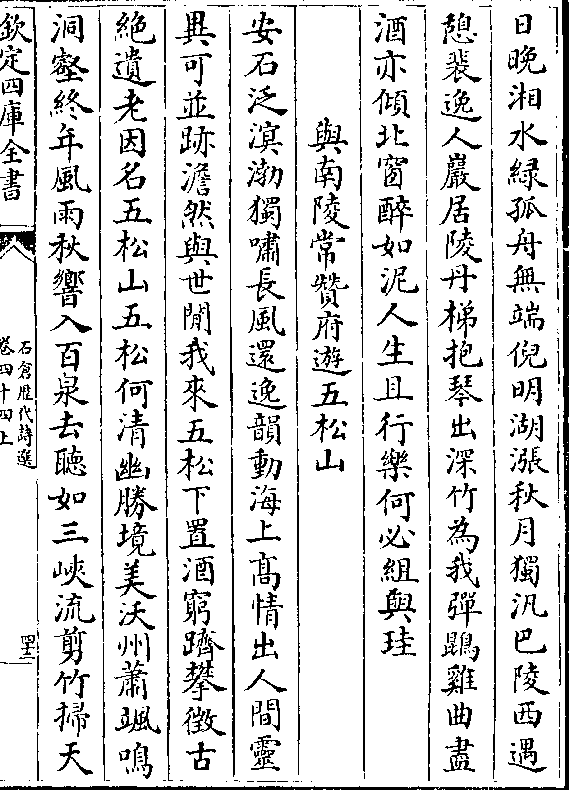 日晚湘水緑孤舟無端倪明湖漲秋月獨汎巴陵西遇
憩裴逸人巖居陵丹梯抱琴出深竹為我彈鵾雞曲盡
酒亦傾北窗醉如泥人生且行樂何必組與珪
與南陵常贊府遊五松山
安石泛溟渤獨嘯長風還逸韻動海上髙情出人間靈
異可並跡澹然與世閒我來五松下置酒窮躋攀徴古
絶遺老因名五松山五松何清幽勝境美沃州蕭颯鳴
洞壑終年風雨秋響入百泉去聽如三峽流剪竹掃天
欽定四庫全書
石倉歴代詩選
卷四十四上